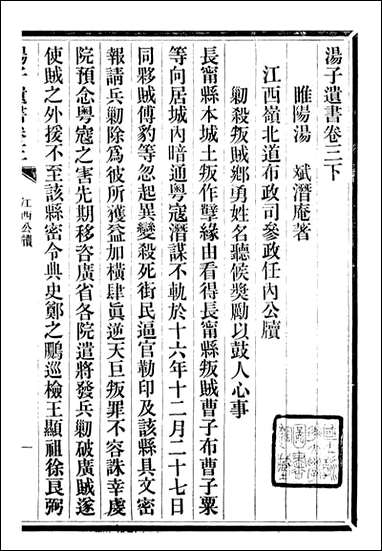 湯子遺書卷三下
睢陽湯　斌潛庵著
江西嶺北道布政司參政任內公牘
勦殺叛賊鄉勇姓名聽候獎勵以鼓人心事
長甯縣本城土叛作孽緣由看得長甯縣叛賊曹子布曹子粟
等向居城內暗通粵寇潛謀不軌於十六年十二月二十七日
同夥賊傅豹等忽起異變殺死街民逼官勒印及該縣具文密
報請兵勦除為彼所獲益加橫肆眞逆天亘叛罪不容誅幸虔
院預念粵寇之害先期移咨廣省各院遣將發兵勦破廣賊遂
使賊之外援不至該縣密令典史鄭之鵬巡檢王顯祖徐良弼
湯子遺書卷三
江西公牘
一